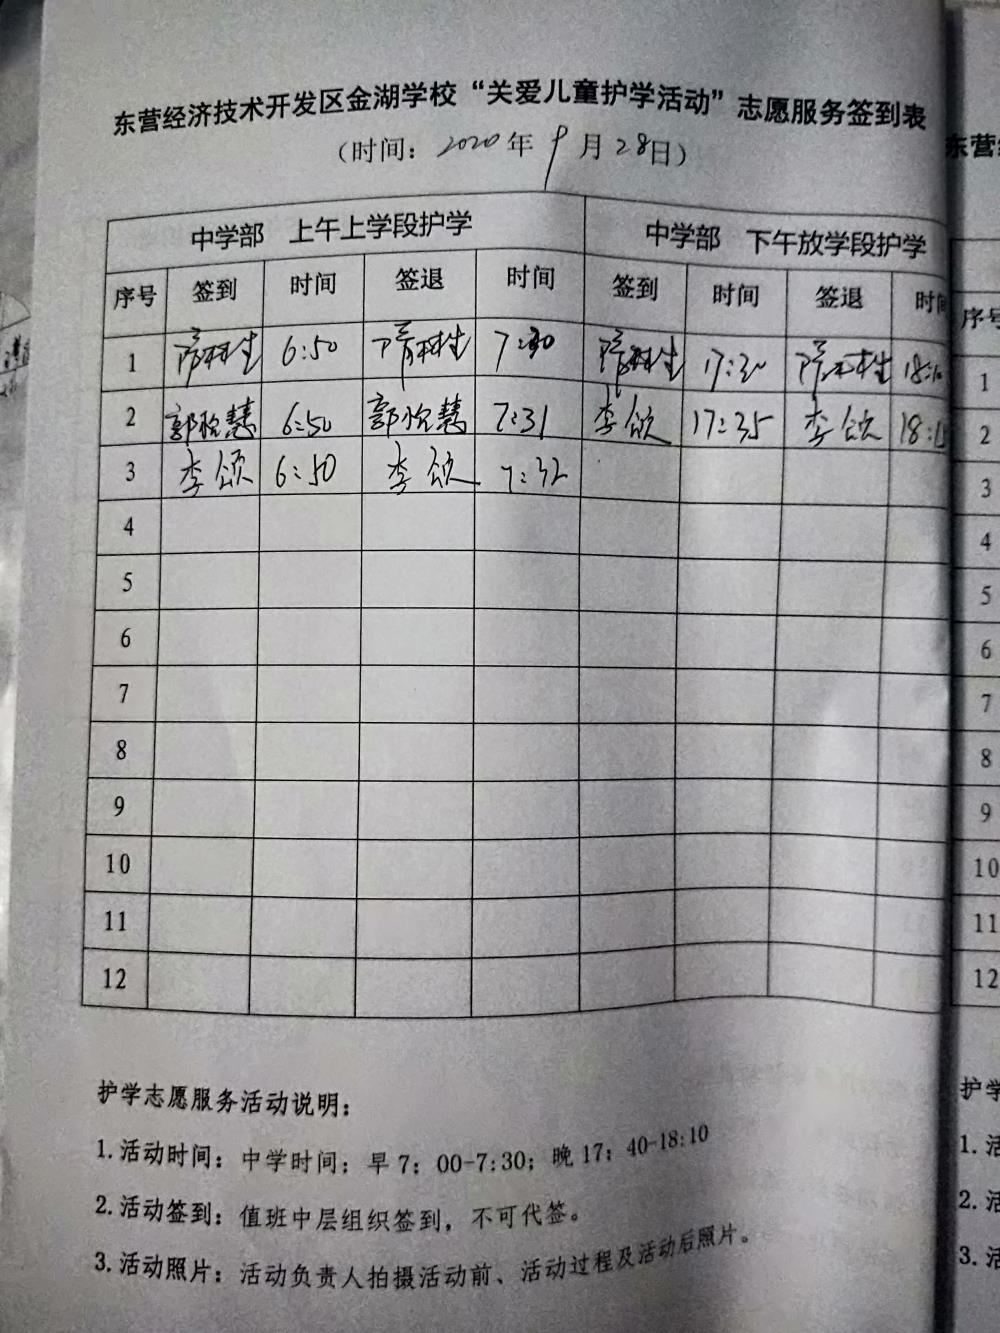 东营经济技术开发区金湖学校“关爱儿童护学活动”志愿服务签到表
（时间：2020年9月28日）
中学部 上午上学段护学 中学部 下午放学段护学
序号 签到 时间 签退 时间 签到 时间 签退 时间
1 6:50 7:30 17:30
2 6:50 7:31 李颂 17:35 李颂
3 李颂 6:50 李颂 7:32
4
5
6
7
8
9
10
11
12
护学志愿服务活动说明：
1.活动时间：中学时间：早7：00-7:30；晚17：40-18:10
2.活动签到：值班中层组织签到，不可代签。
3.活动照片：活动负责人拍摄活动前、活动过程及活动后照片。
东营
序号
1
2
3
4
5
6
7
8
9
10
11
12
护学
1.活
2.活
3.活